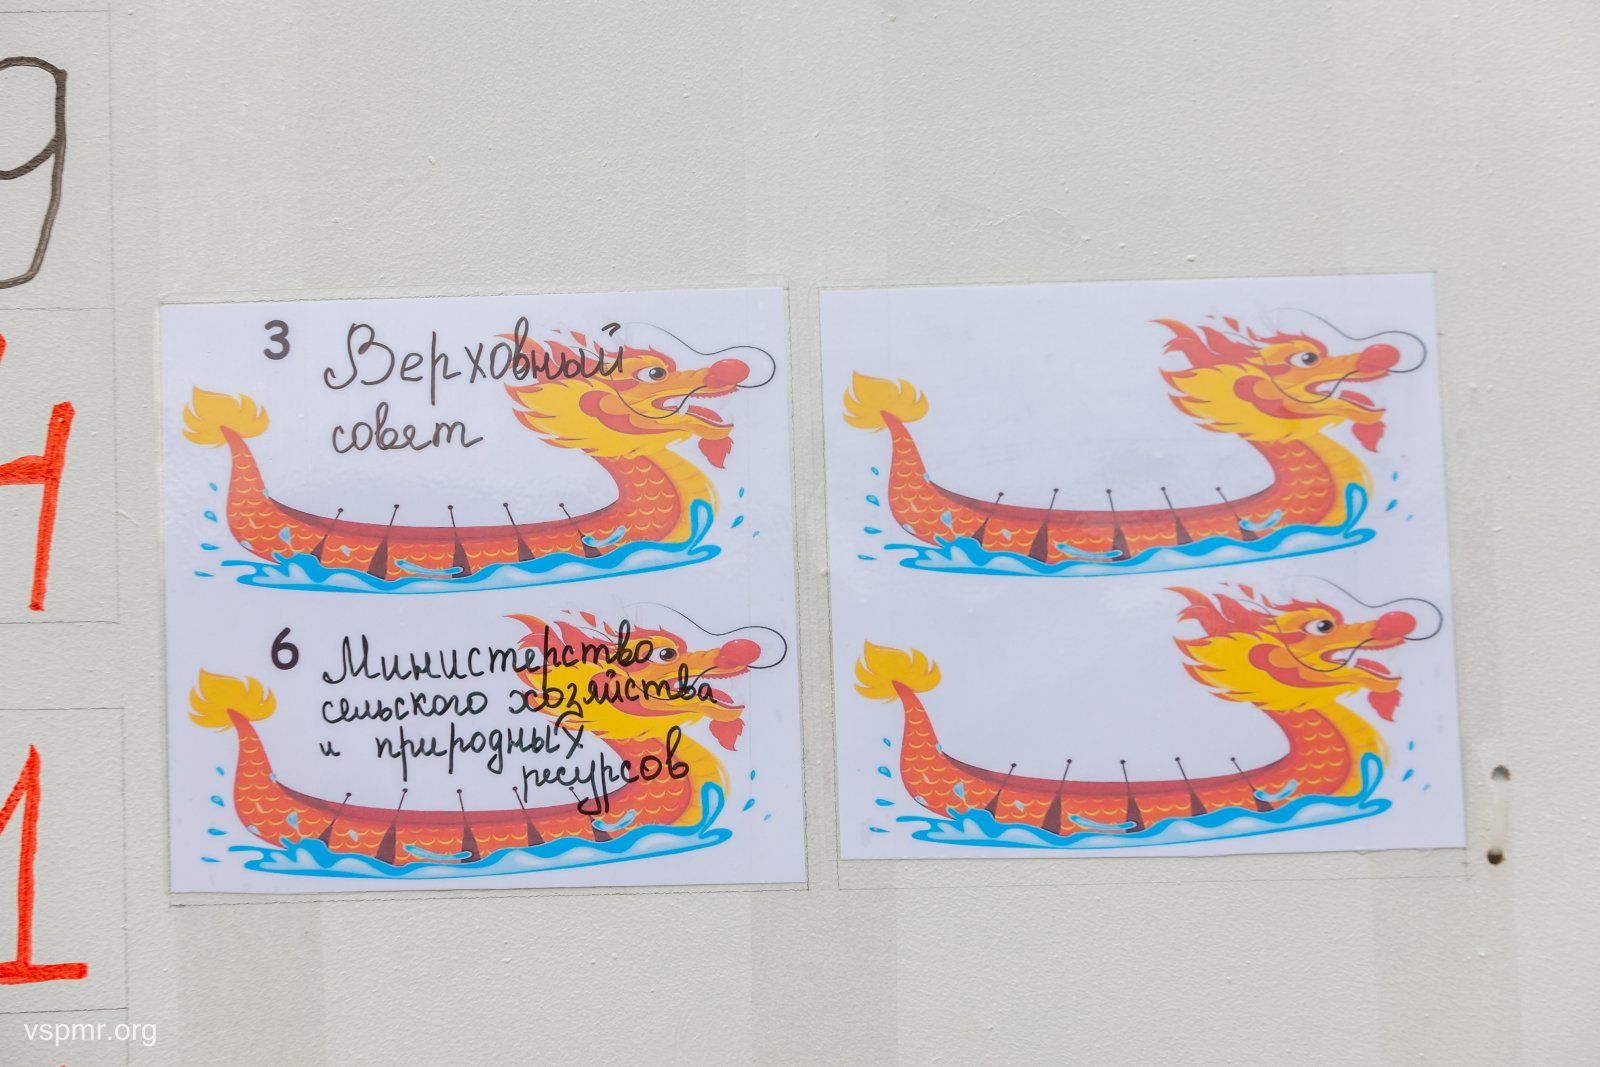 9
4
1
3 Верховный
совет
6 Министерство
сельского хозяйства
и природных
ресурсов
vspmr.org